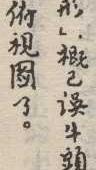 形い概已误牛頭
俯視圖了。